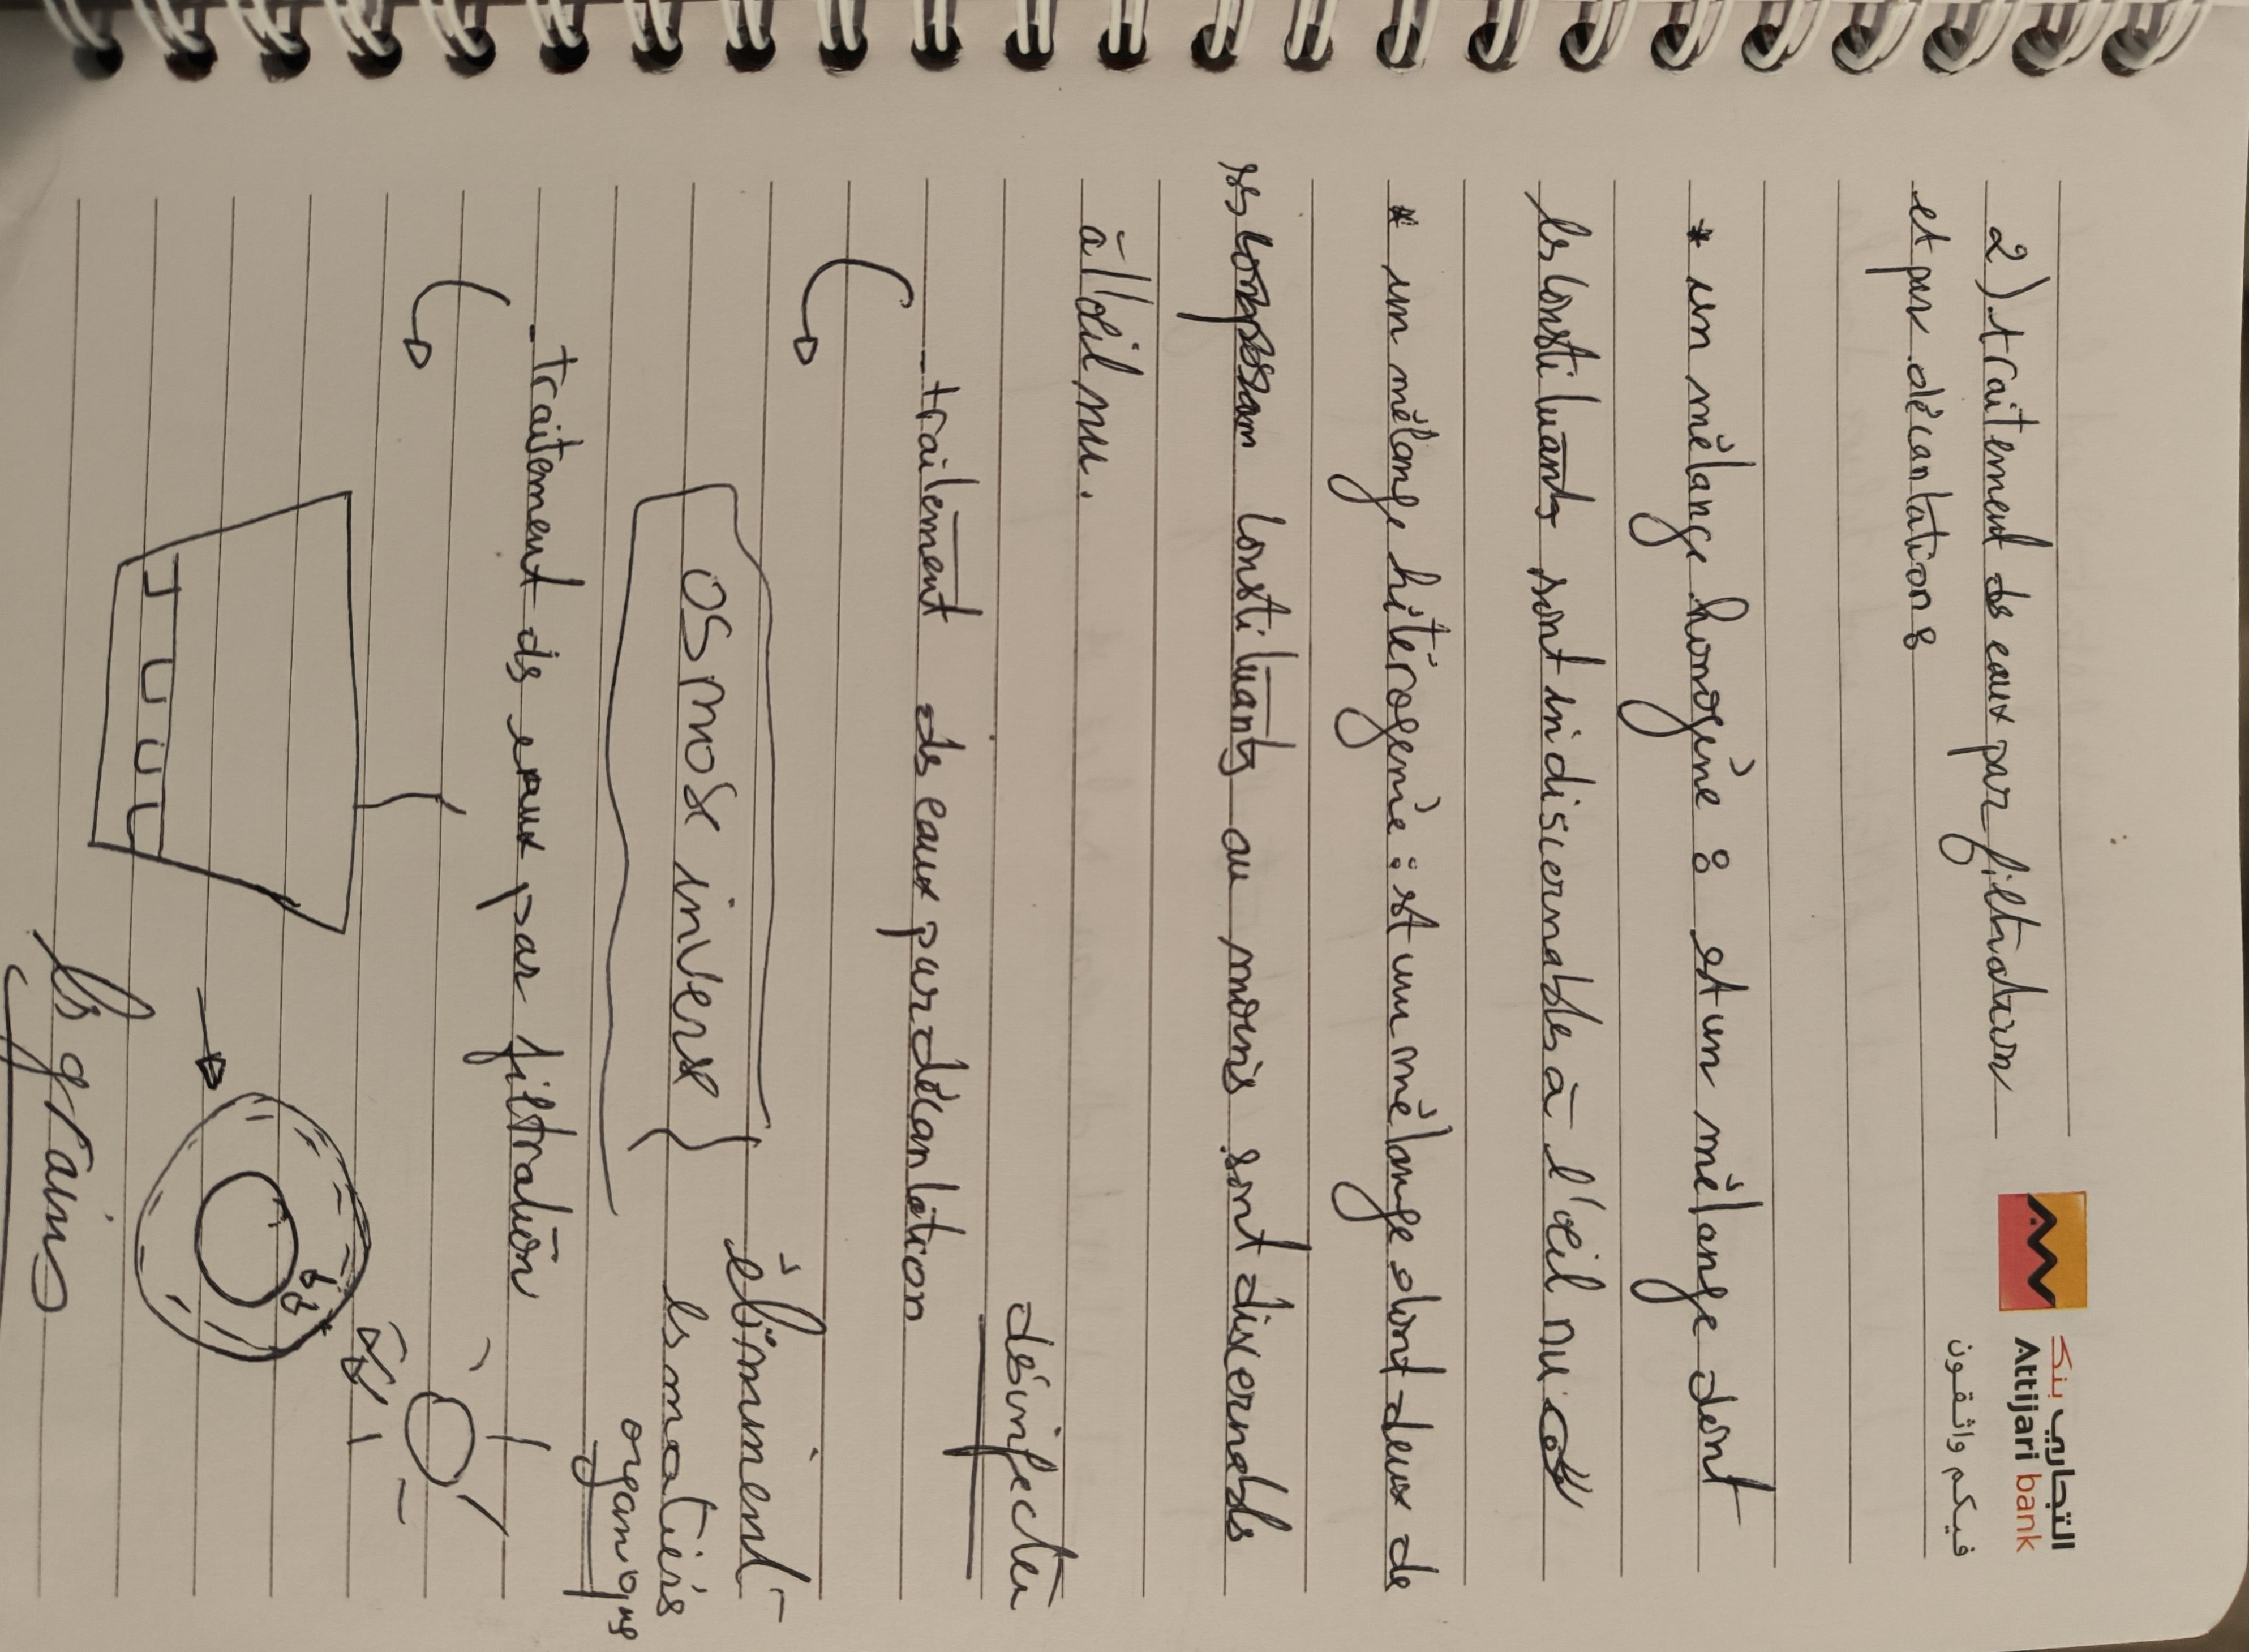 التجاري بنك
Attijari bank
فيكم واثقون
2) traitement des eaux par filtration
et par décantation :
* un mélange homogène : est un mélange dont
les constituants sont indiscernables à l'oeil nu
* un mélange hétérogène : est un mélange dont deux de
ses constituants au moins sont discernables
à l'oeil nu.
désinfecter
- traitement des eaux par décantation
osmose inverse
éliminent
les matières
organique
- traitement des eaux par filtration
les grains